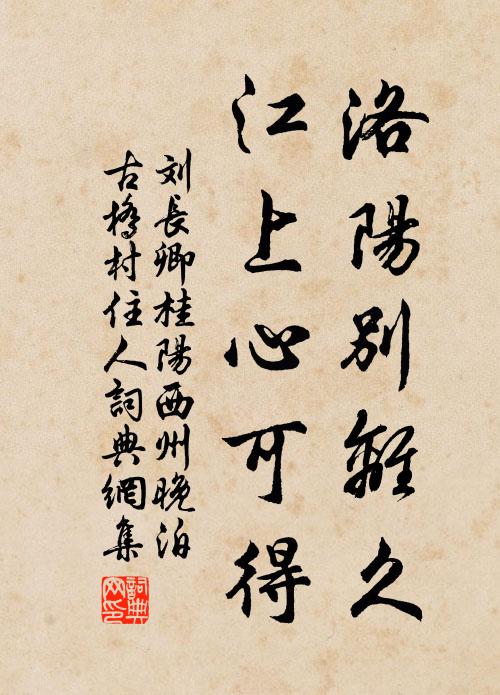 洛陽別離久
江上心可得
刘長卿桂陽西州晚泊
古橋村住人詞典網集
詞典网印